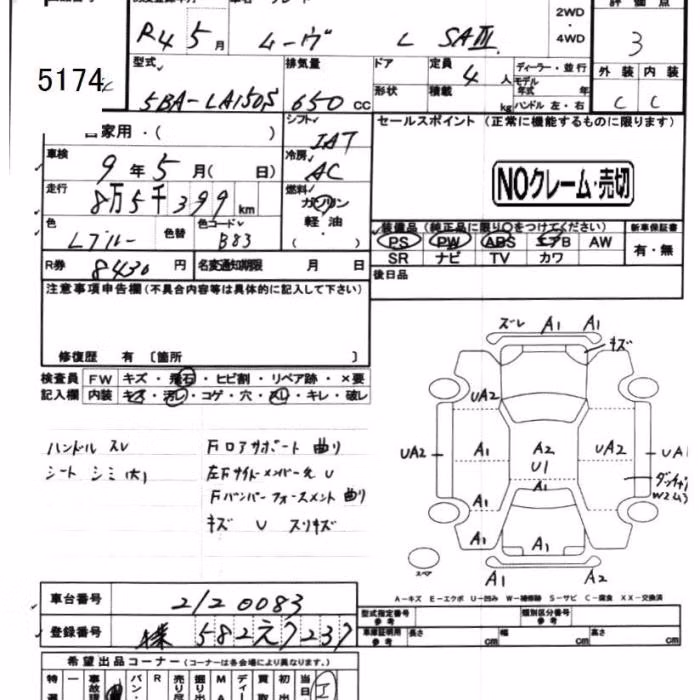 2WD
・
R4 5月 ムーヴ L SAⅢ 4WD 3
型式 排気量 ドア 定員 4人 ディーラー・並行
モデル
外装 内装
5174
形状 積載 kg 年式 年
ハンドル 左・右
5BA-LA150S 650 CC C C
家用・( )
シフト IAT
セールスポイント (正常に機能するものに限ります)
車検 9年5月( 日)
冷房 AC
NOクレーム・売切
走行 8万5千399km
燃料 ガソリン
軽油
・( )
色 Lブルー 色替 色コード B83
装備品 (純正品に限り○をつけてください) 新車保証書
PS PW ABS エアB AW 有・無
SR ナビ TV カワ
R券 8430円 名変通知期限 月 日
後日品
注意事項申告欄(不具合内容等は具体的に記入して下さい)
修復歴 有〔箇所 〕
検査員 FW キズ・飛石・ヒビ割・リペア跡・×要
記入欄 内装 キズ・汚レ・コゲ・穴・スレ・キレ・破レ
ズレ A1 A1
キズ
UA2
UA2 A1 A2 UA2 UA1
U1
A1 A1
A1
A1 A1
A1 A2
スペア
ハンドル スレ
シート シミ(大)
Fロアサポート 曲り
左Fサイドメンバー先 U
Fバンパーフォースメント 曲り
キズ U スリキズ
A-キズ E-エクボ U-凹み W-補修跡 S-サビ C-腐食 XX-交換済
車台番号 2120083
型式指定番号 参考 類別区分番号 参考
登録番号 582え7237
車庫証明用 参考 長さ cm 幅 cm 高さ cm
希望出品コーナー(コーナーは各会場により異なります。)